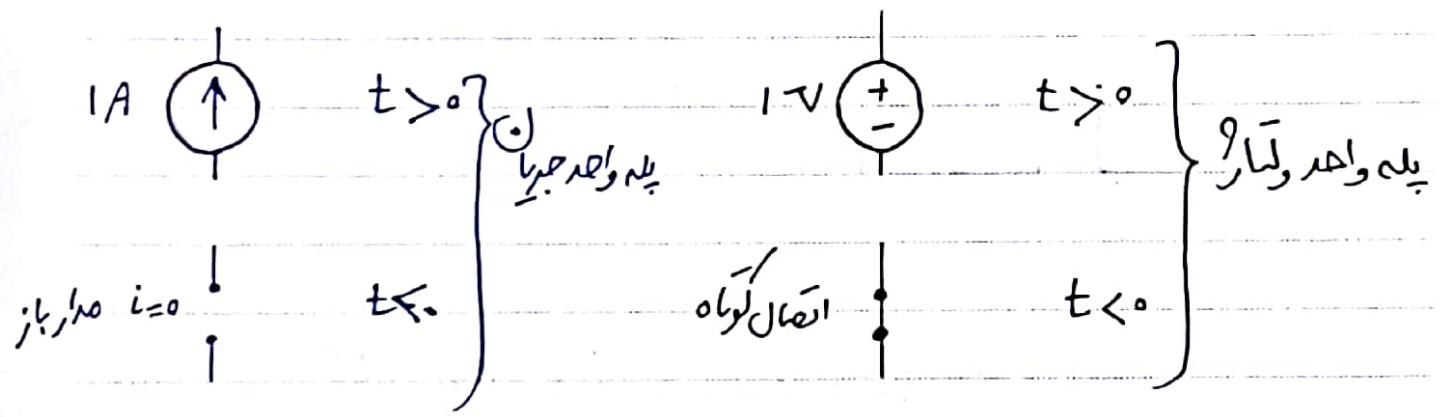 1A t>0 پله واحد جریان
i=0 مدار باز t<0
1V + − t>0 پله واحد ولتاژ
اتصال کوتاه t<0